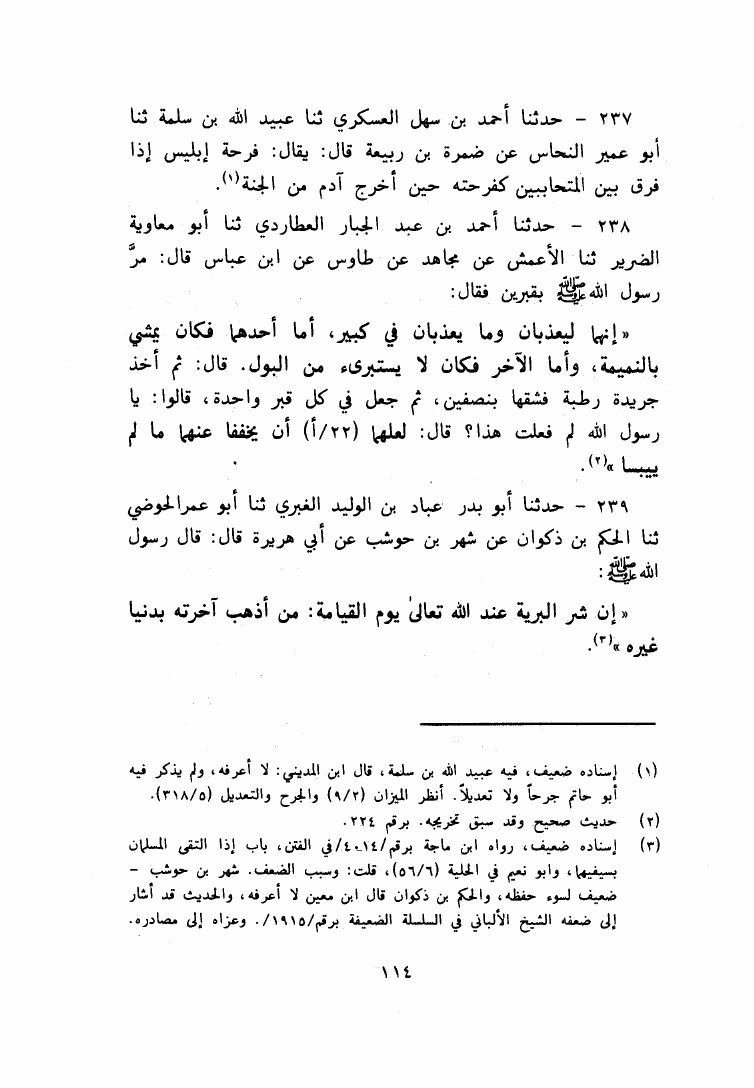 ٢٣٧ - حدثنا أحمد بن سهل العسكري ثنا عبيد الله بن سلمة ثنا
أبو عمير النحاس عن ضمرة بن ربيعة قال: يقال: فرحة إبليس إذا
فرق بين المتحابين كفرحته حين أخرج آدم من الجنة(١).
٢٣٨ - حدثنا أحمد بن عبد الجبار العطاردي ثنا أبو معاوية
الضرير ثنا الأعمش عن مجاهد عن طاوس عن ابن عباس قال: مرَّ
رسول الله ﷺ بقبرين فقال:
«إنهما ليعذبان وما يعذبان في كبير، أما أحدهما فكان يمشي
بالنميمة، وأما الآخر فكان لا يستبرىء من البول. قال: ثم أخذ
جريدة رطبة فشقها بنصفين، ثم جعل في كل قبر واحدة، قالوا: يا
رسول الله لم فعلت هذا؟ قال: لعلهما (٢٢/أ) أن يخففا عنهما ما لم
ييبسا»(٢).
٢٣٩ - حدثنا أبو بدر عباد بن الوليد الغبري ثنا أبو عمر الحوضي
ثنا الحكم بن ذكوان عن شهر بن حوشب عن أبي هريرة قال: قال رسول
الله ﷺ:
«إن شر البرية عند الله تعالىٰ يوم القيامة: من أذهب آخرته بدنيا
غيره»(٣).
(١) إسناده ضعيف، فيه عبيد الله بن سلمة، قال ابن المديني: لا أعرفه، ولم يذكر فيه
أبو حاتم جرحاً ولا تعديلاً. أنظر الميزان (٩/٢) والجرح والتعديل (٣١٨/٥).
(٢) حديث صحيح وقد سبق تخريجه. برقم ٢٢٤.
(٣) إسناده ضعيف، رواه ابن ماجة برقم/٤٠١٤/في الفتن، باب إذا التقى المسلمان
بسيفيهما، وابو نعيم في الحلية (٥٦/٦)، قلت: وسبب الضعف. شهر بن حوشب -
ضعيف لسوء حفظه، والحكم بن ذكوان قال ابن معين لا أعرفه، والحديث قد أشار
إلى ضعفه الشيخ الألباني في السلسلة الضعيفة برقم/١٩١٥/. وعزاه إلى مصادره.
١١٤